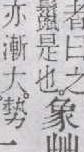 者曰之
是也。象艸
亦漸大。勢一